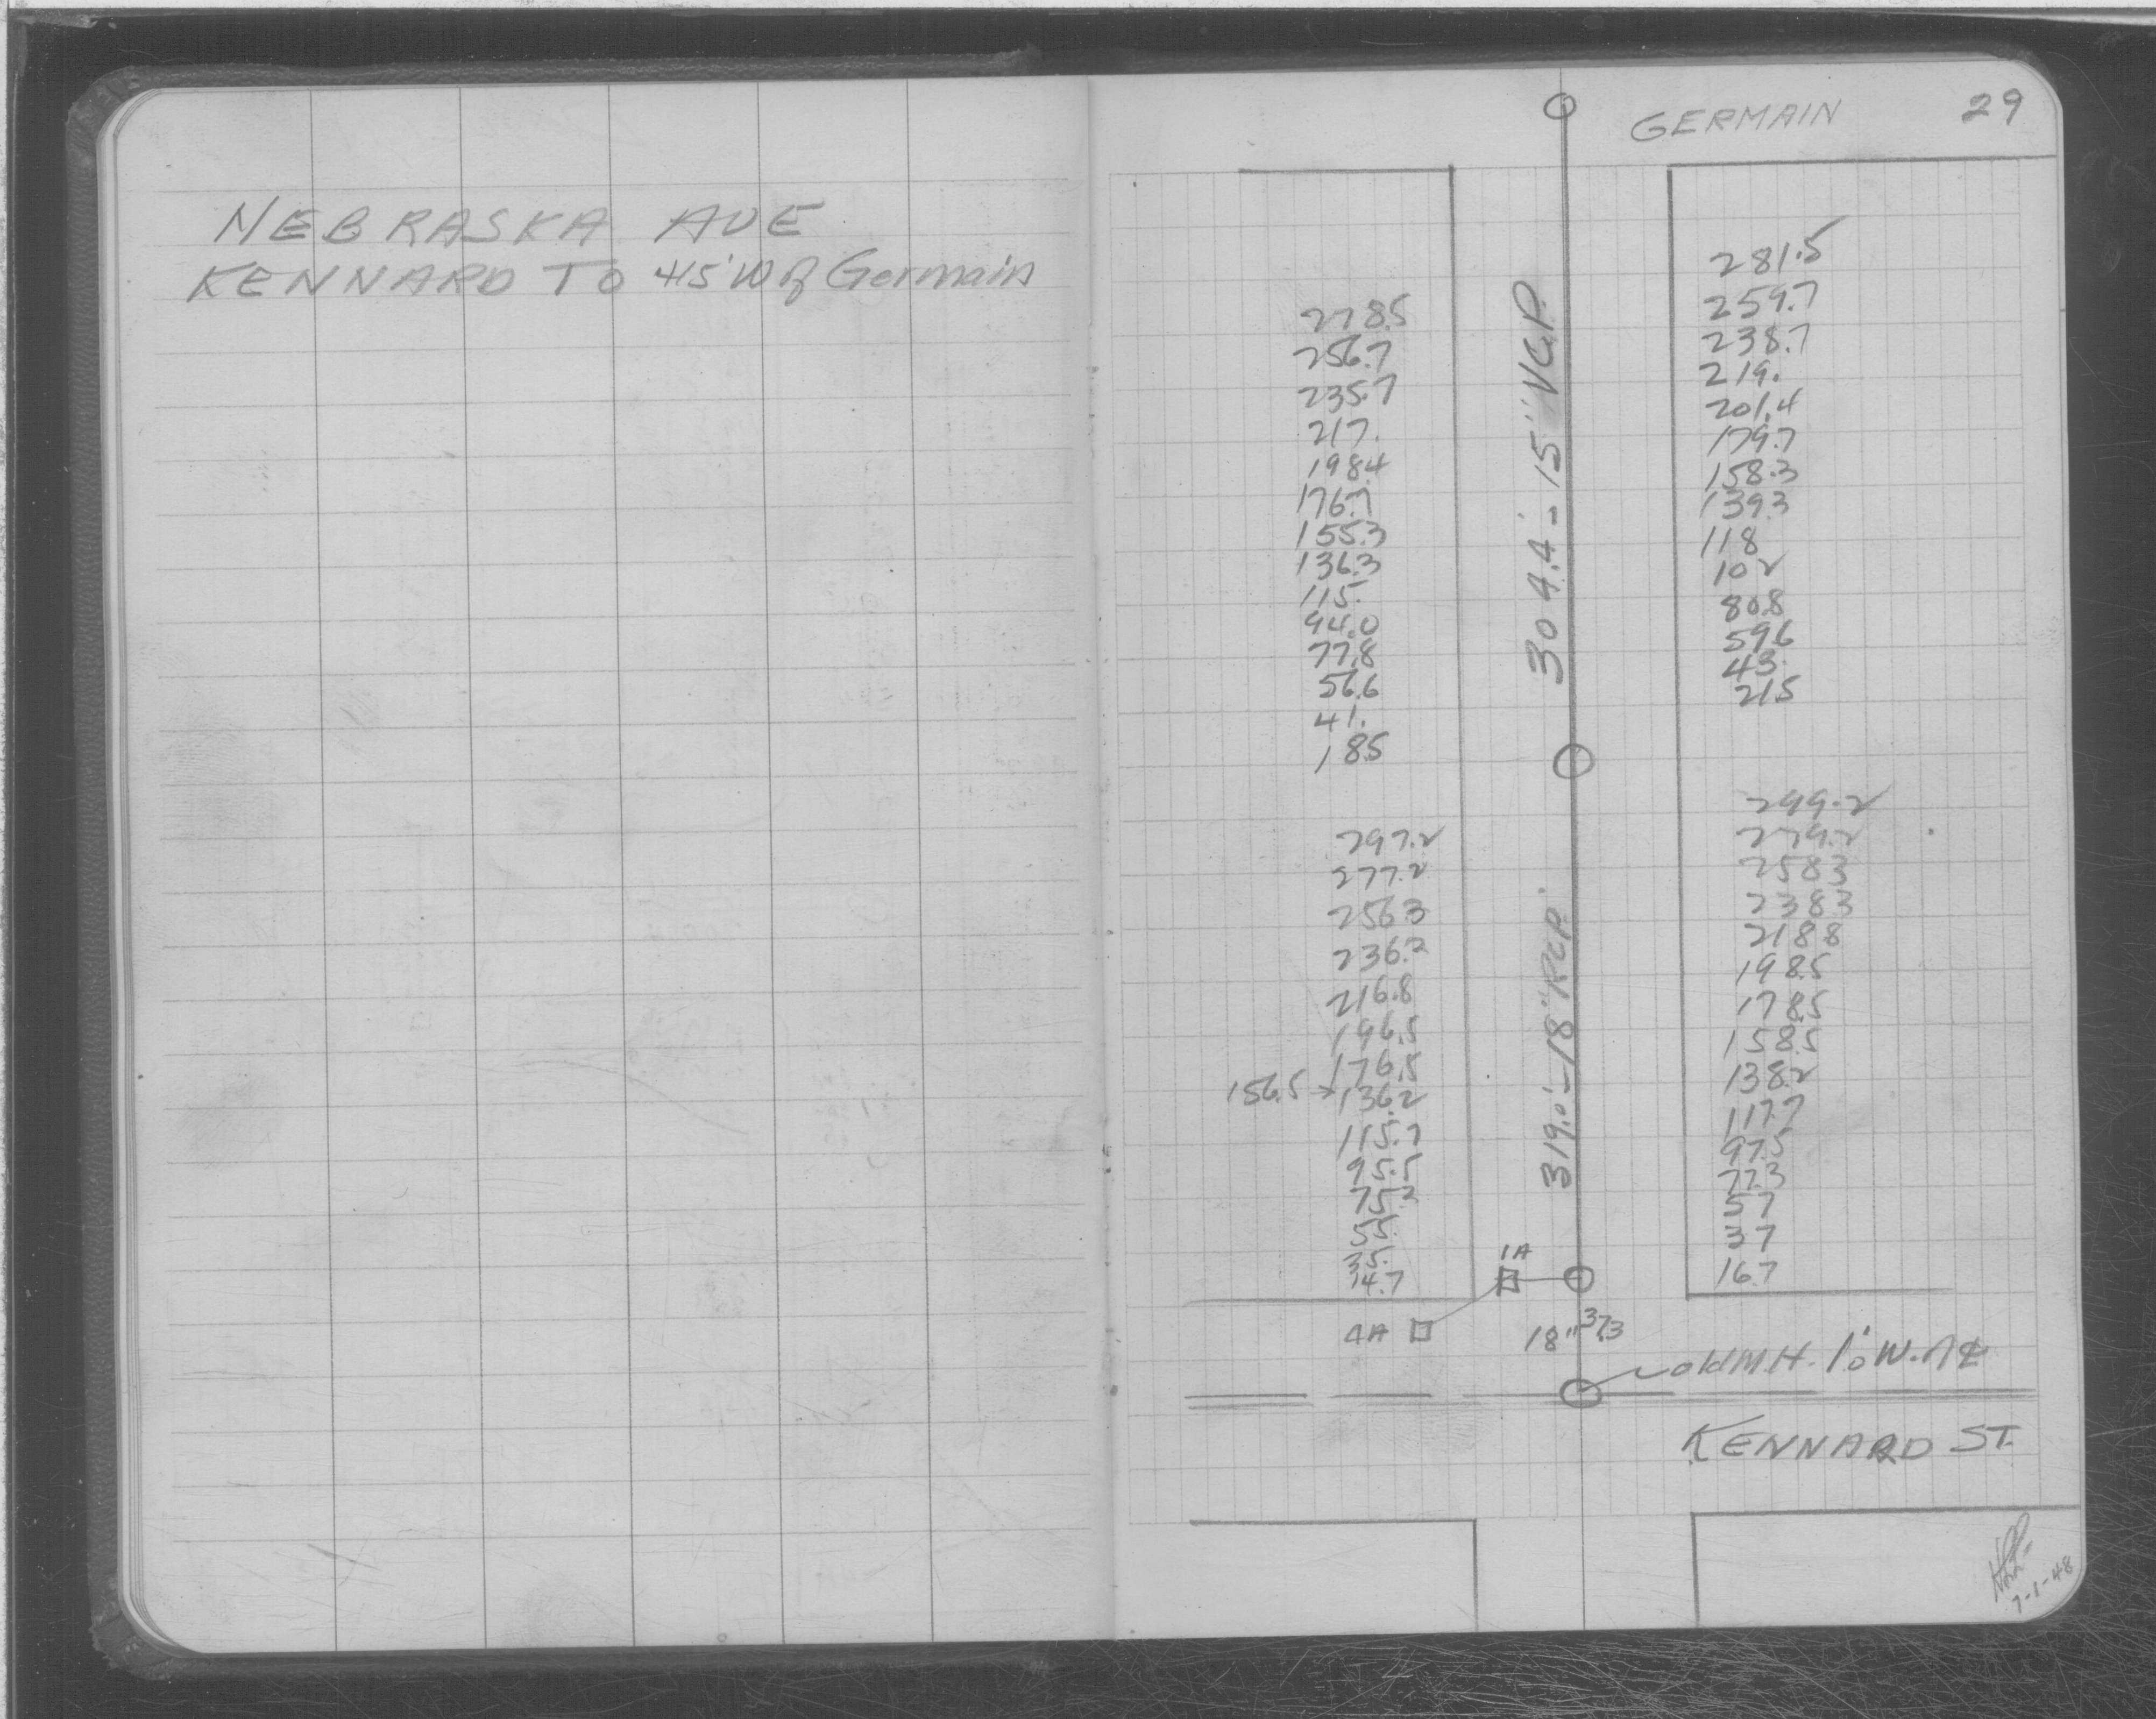 NEBRASKA AVE
KENNARD TO 415' W of Germain
GERMAIN
29
278.5
256.7
235.7
217.
198.4
176.7
155.3
136.3
115.
94.0
77.8
56.6
41.
18.5
304.4' - 15" V.C.P.
281.5
259.7
238.7
219.
201.4
179.7
158.3
139.3
118
102
80.8
59.6
43.
21.5
297.2
277.2
256.3
236.3
216.8
196.5
176.5
156.5 → 136.2
115.7
95.5
75.3
55.
35.
14.7
319.0' - 18" R.C.P.
299.2
279.2
258.3
238.3
218.8
198.5
178.5
158.5
138.2
117.7
97.5
77.3
57
37
16.7
1A
4A
18" 37.3
old M.H. 1.0' W. of ℄
KENNARD ST.
7-1-48